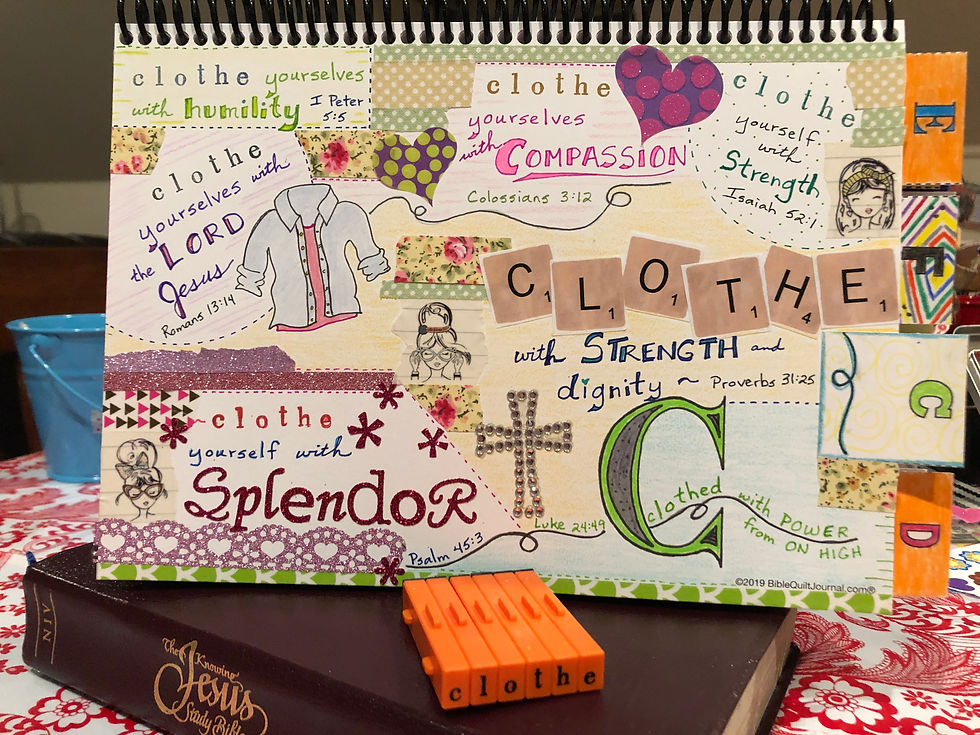 clothe yourselves
with humility I Peter
5:5
clothe
yourselves
with COMPASSION
Colossians 3:12
clothe
yourself
with
Strength
Isaiah 52:1
clothe
yourselves with
the LORD
Jesus
Romans 13:14
C1 L1 O1 T1 H4 E1
with STRENGTH and
dignity ~ Proverbs 31:25
clothe
yourself with
SplendoR
Psalm 45:3
Luke 24:49
C
clothed with POWER
from ON HIGH
©2019 BibleQuiltJournal.com®
E
F
C
D
clothe
NIV
The Knowing
Jesus
Study Bible